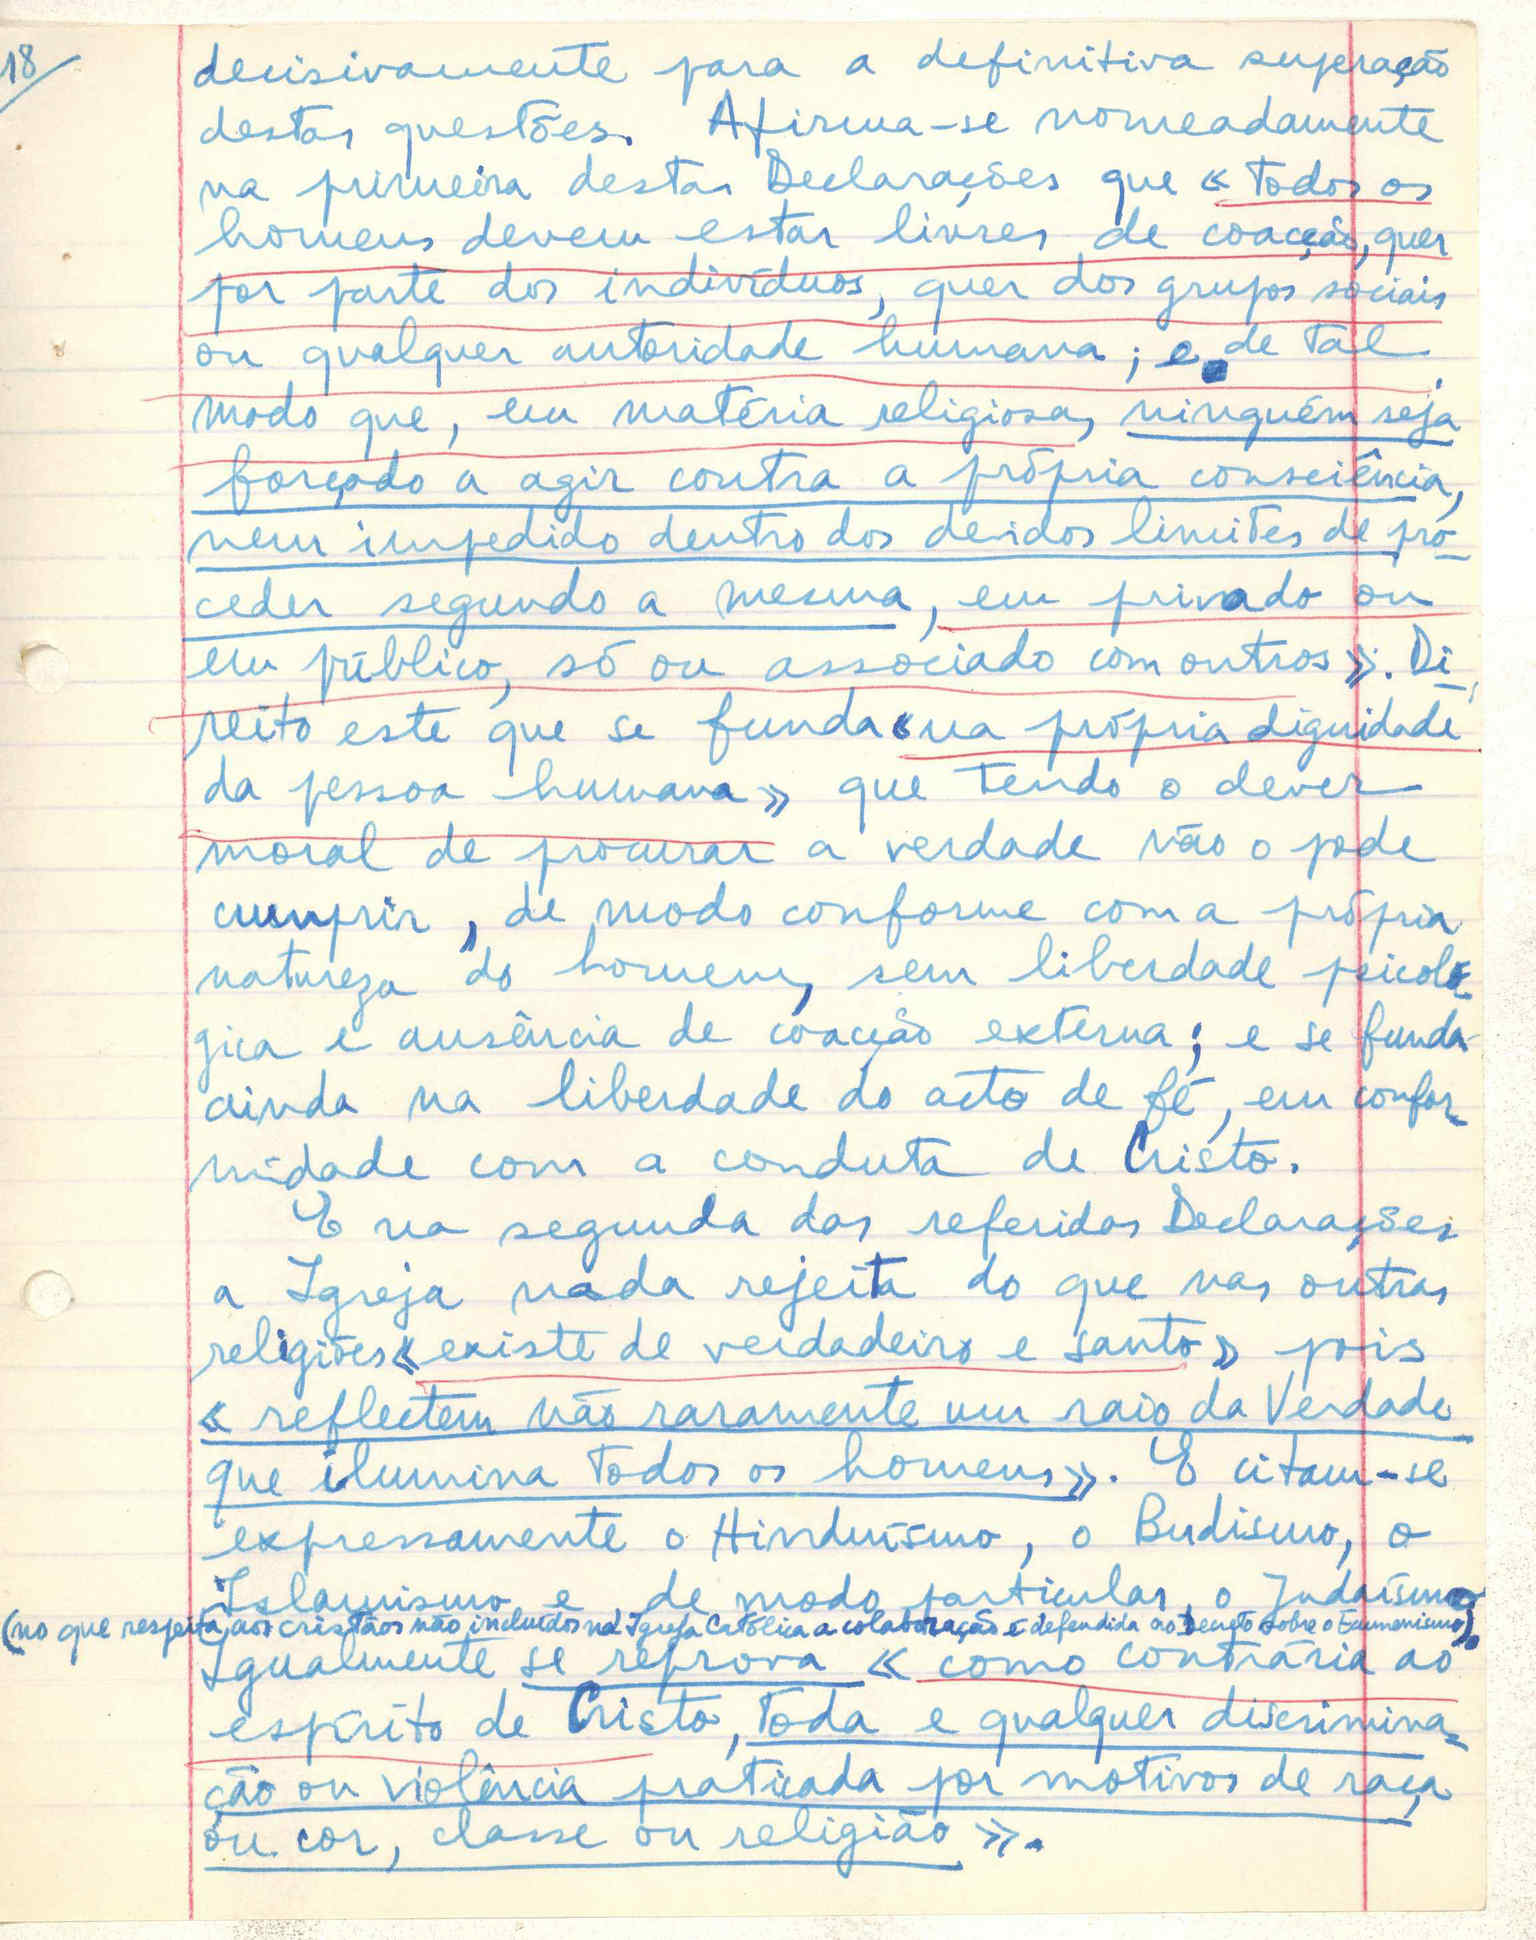 18
decisivamente para a definitiva superação
destas questões. Afirma-se nomeadamente
na primeira destas Declarações que «todos os
homens devem estar livres de coacção, quer
por parte dos indivíduos, quer dos grupos sociais
ou qualquer autoridade humana; e de tal
modo que, em matéria religiosa, ninguém seja
forçado a agir contra a própria consciência,
nem impedido dentro dos devidos limites de pro-
ceder segundo a mesma, em privado ou
em público, só ou associado com outros». Di-
reito este que se funda «na própria dignidade
da pessoa humana» que tendo o dever
moral de procurar a verdade não o pode
cumprir, de modo conforme com a própria
natureza do homem, sem liberdade psicoló-
gica e ausência de coacção externa; e se funda
ainda na liberdade do acto de fé, em confor-
midade com a conduta de Cristo.
E na segunda das referidas Declarações
a Igreja nada rejeita do que nas outras
religiões «existe de verdadeiro e santo» pois
«reflectem não raramente um raio da Verdade
que ilumina todos os homens». E citam-se
expressamente o Hinduísmo, o Budismo, o
Islamismo e, de modo particular, o Judaísmo
(no que respeita aos cristãos não incluídos na Igreja Católica a colaboração é defendida no Decreto sobre o Ecumenismo).
Igualmente se reprova «como contrária ao
espírito de Cristo, toda e qualquer discrimina-
ção ou violência praticada por motivos de raça
ou cor, classe ou religião».